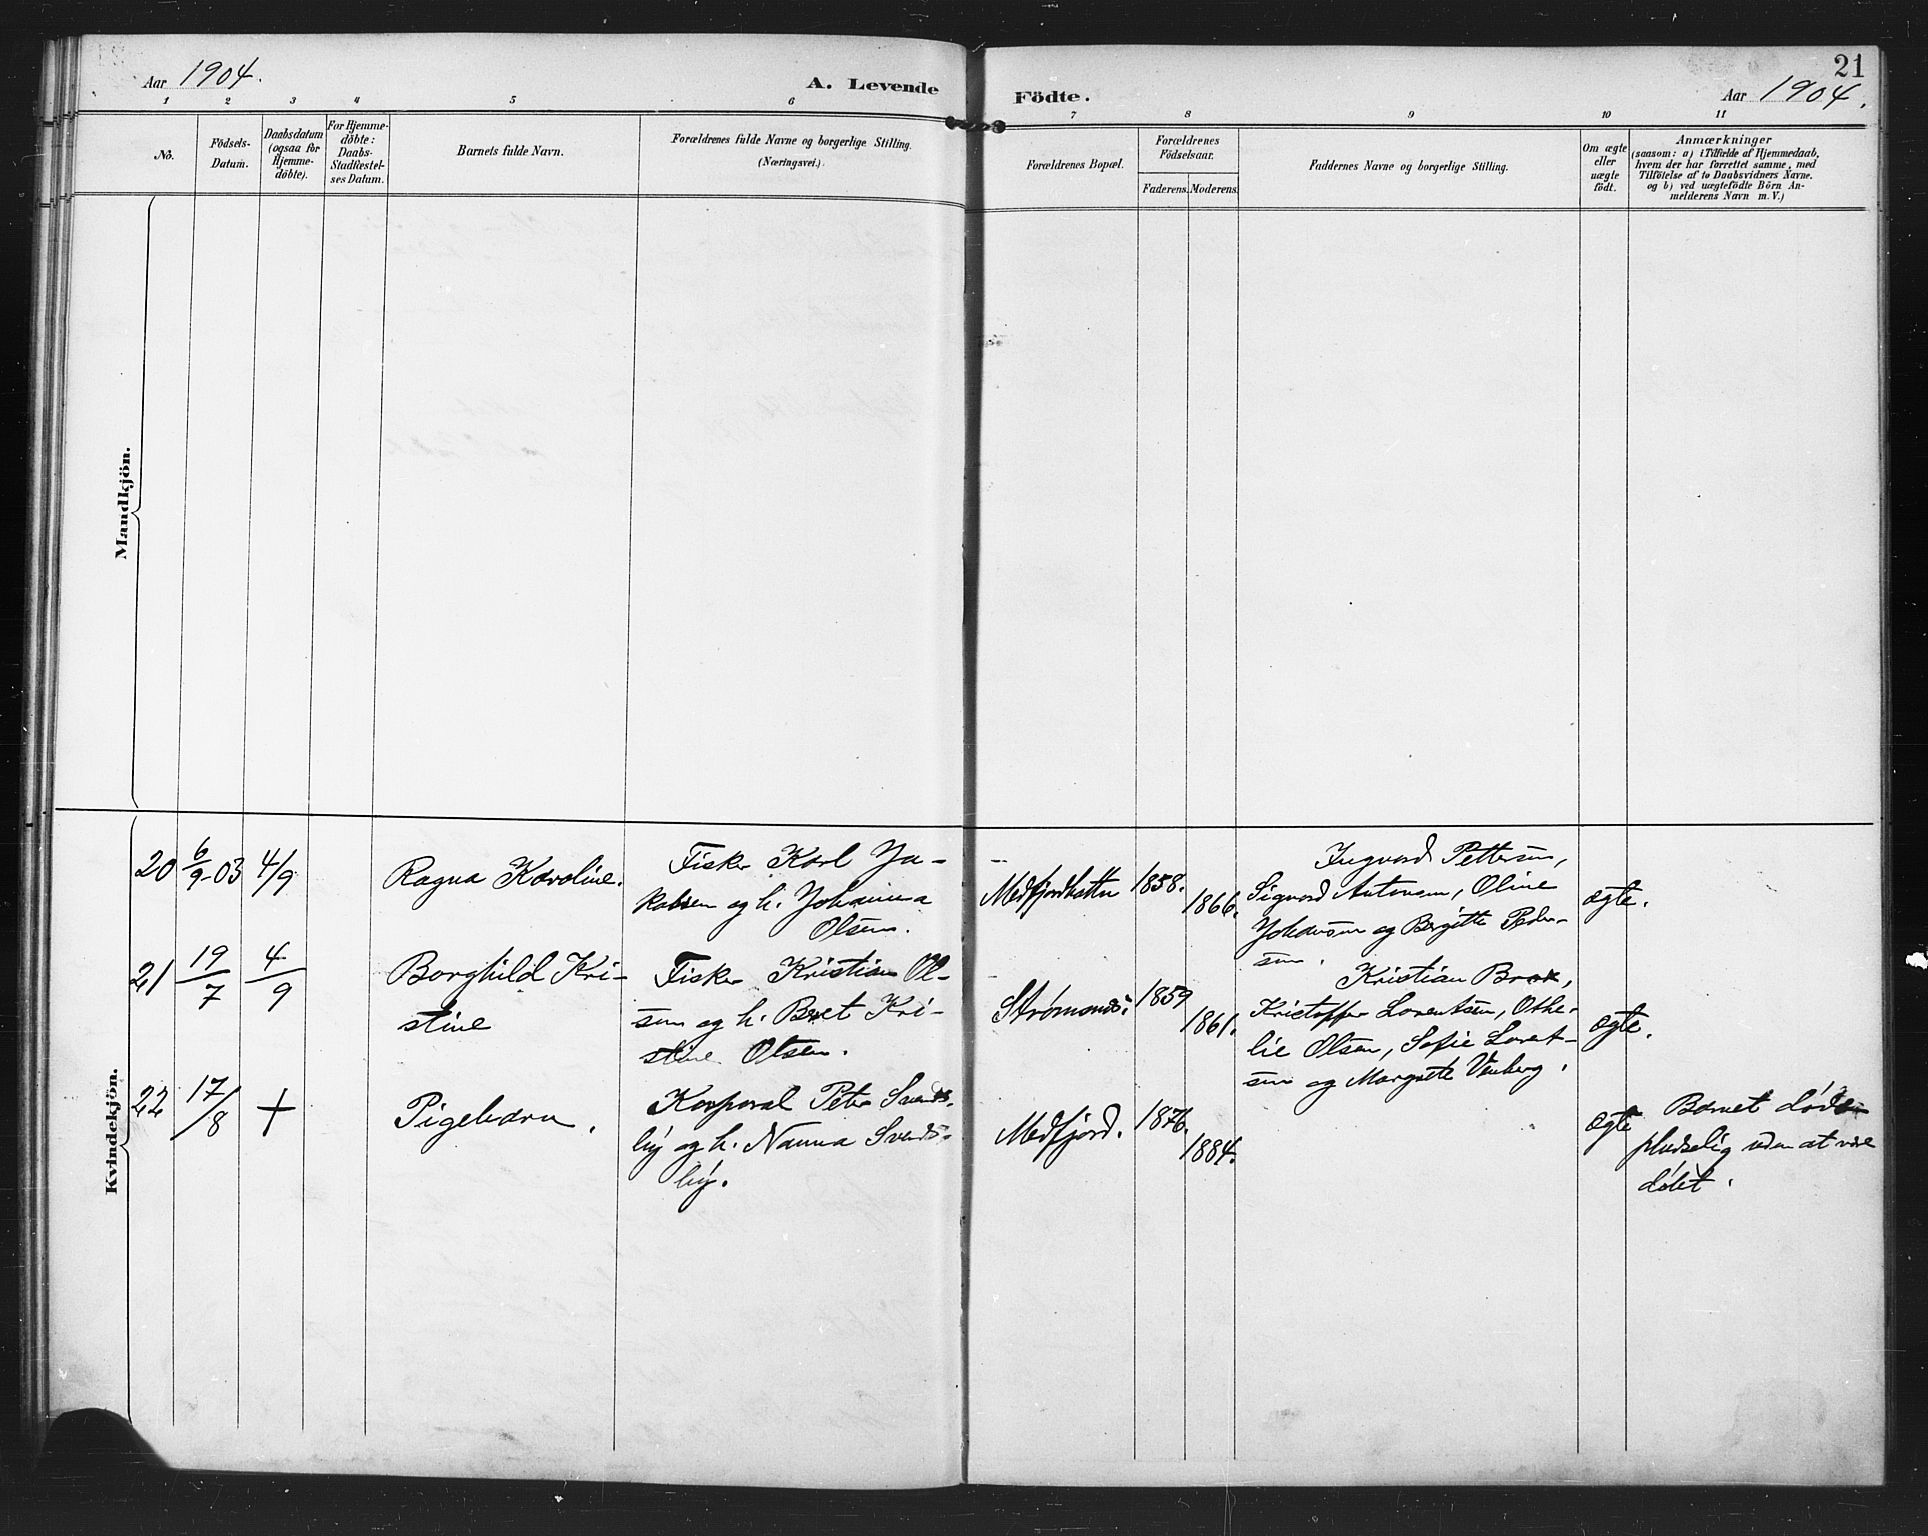 Aar 1904.
A. Levende
Födte.
21
Aar 1904.
1 2 3 4 5 6 7 8 9 10 11
No.
Födsels-
Datum.
Daabsdatum
(ogsaa for
Hjemme-
döbte).
For Hjemme-
döbte:
Daabs-
Stadfæstel-
ses Datum.
Barnets fulde Navn.
Forældrenes fulde Navne og borgerlige Stilling.
(Næringsvei).
Forældrenes Bopæl.
Forældrenes
Födselsaar.
Faderens. Moderens.
Faddernes Navne og borgerlige Stilling.
Om ægte
eller
uægte
födt.
Anmærkninger
(saasom: a) i Tilfælde af Hjemmedaab,
hvem der har forrettet samme, med
Tilföielse af to Daabsvidners Navne.
og b) ved uægtefödte Börn An-
melderens Navn m. V.)
Mandkjön.
Kvindekjön.
20
6/9-03
4/9
Ragna Karoline.
Fisker Karl Ja-
kobsen og h. Johanna
Olsen.
1858.
1866.
Ingvard Pettersen,
Sigvard Antonsen, Oline
Johansen og Bergitte Peder-
sen.
ægte.
21
19/7
4/9
Borghild Kri-
stine
Fisker Kristian Ol-
sen og h. Beret Kri-
stine Olsen.
Strømsnes.
1859
1861.
Kristian Brox,
Kristoffer Lorentsen, Othe-
lie Olsen, Sofie Lorent-
sen og Margrete Venberg.
ægte.
22
17/8
+
Pigebarn.
Korporal Peter Svends-
by og h. Nanna Svends-
by.
Medfjord.
1876.
1884.
ægte
Barnet døde
pludselig uden at være
døbt.